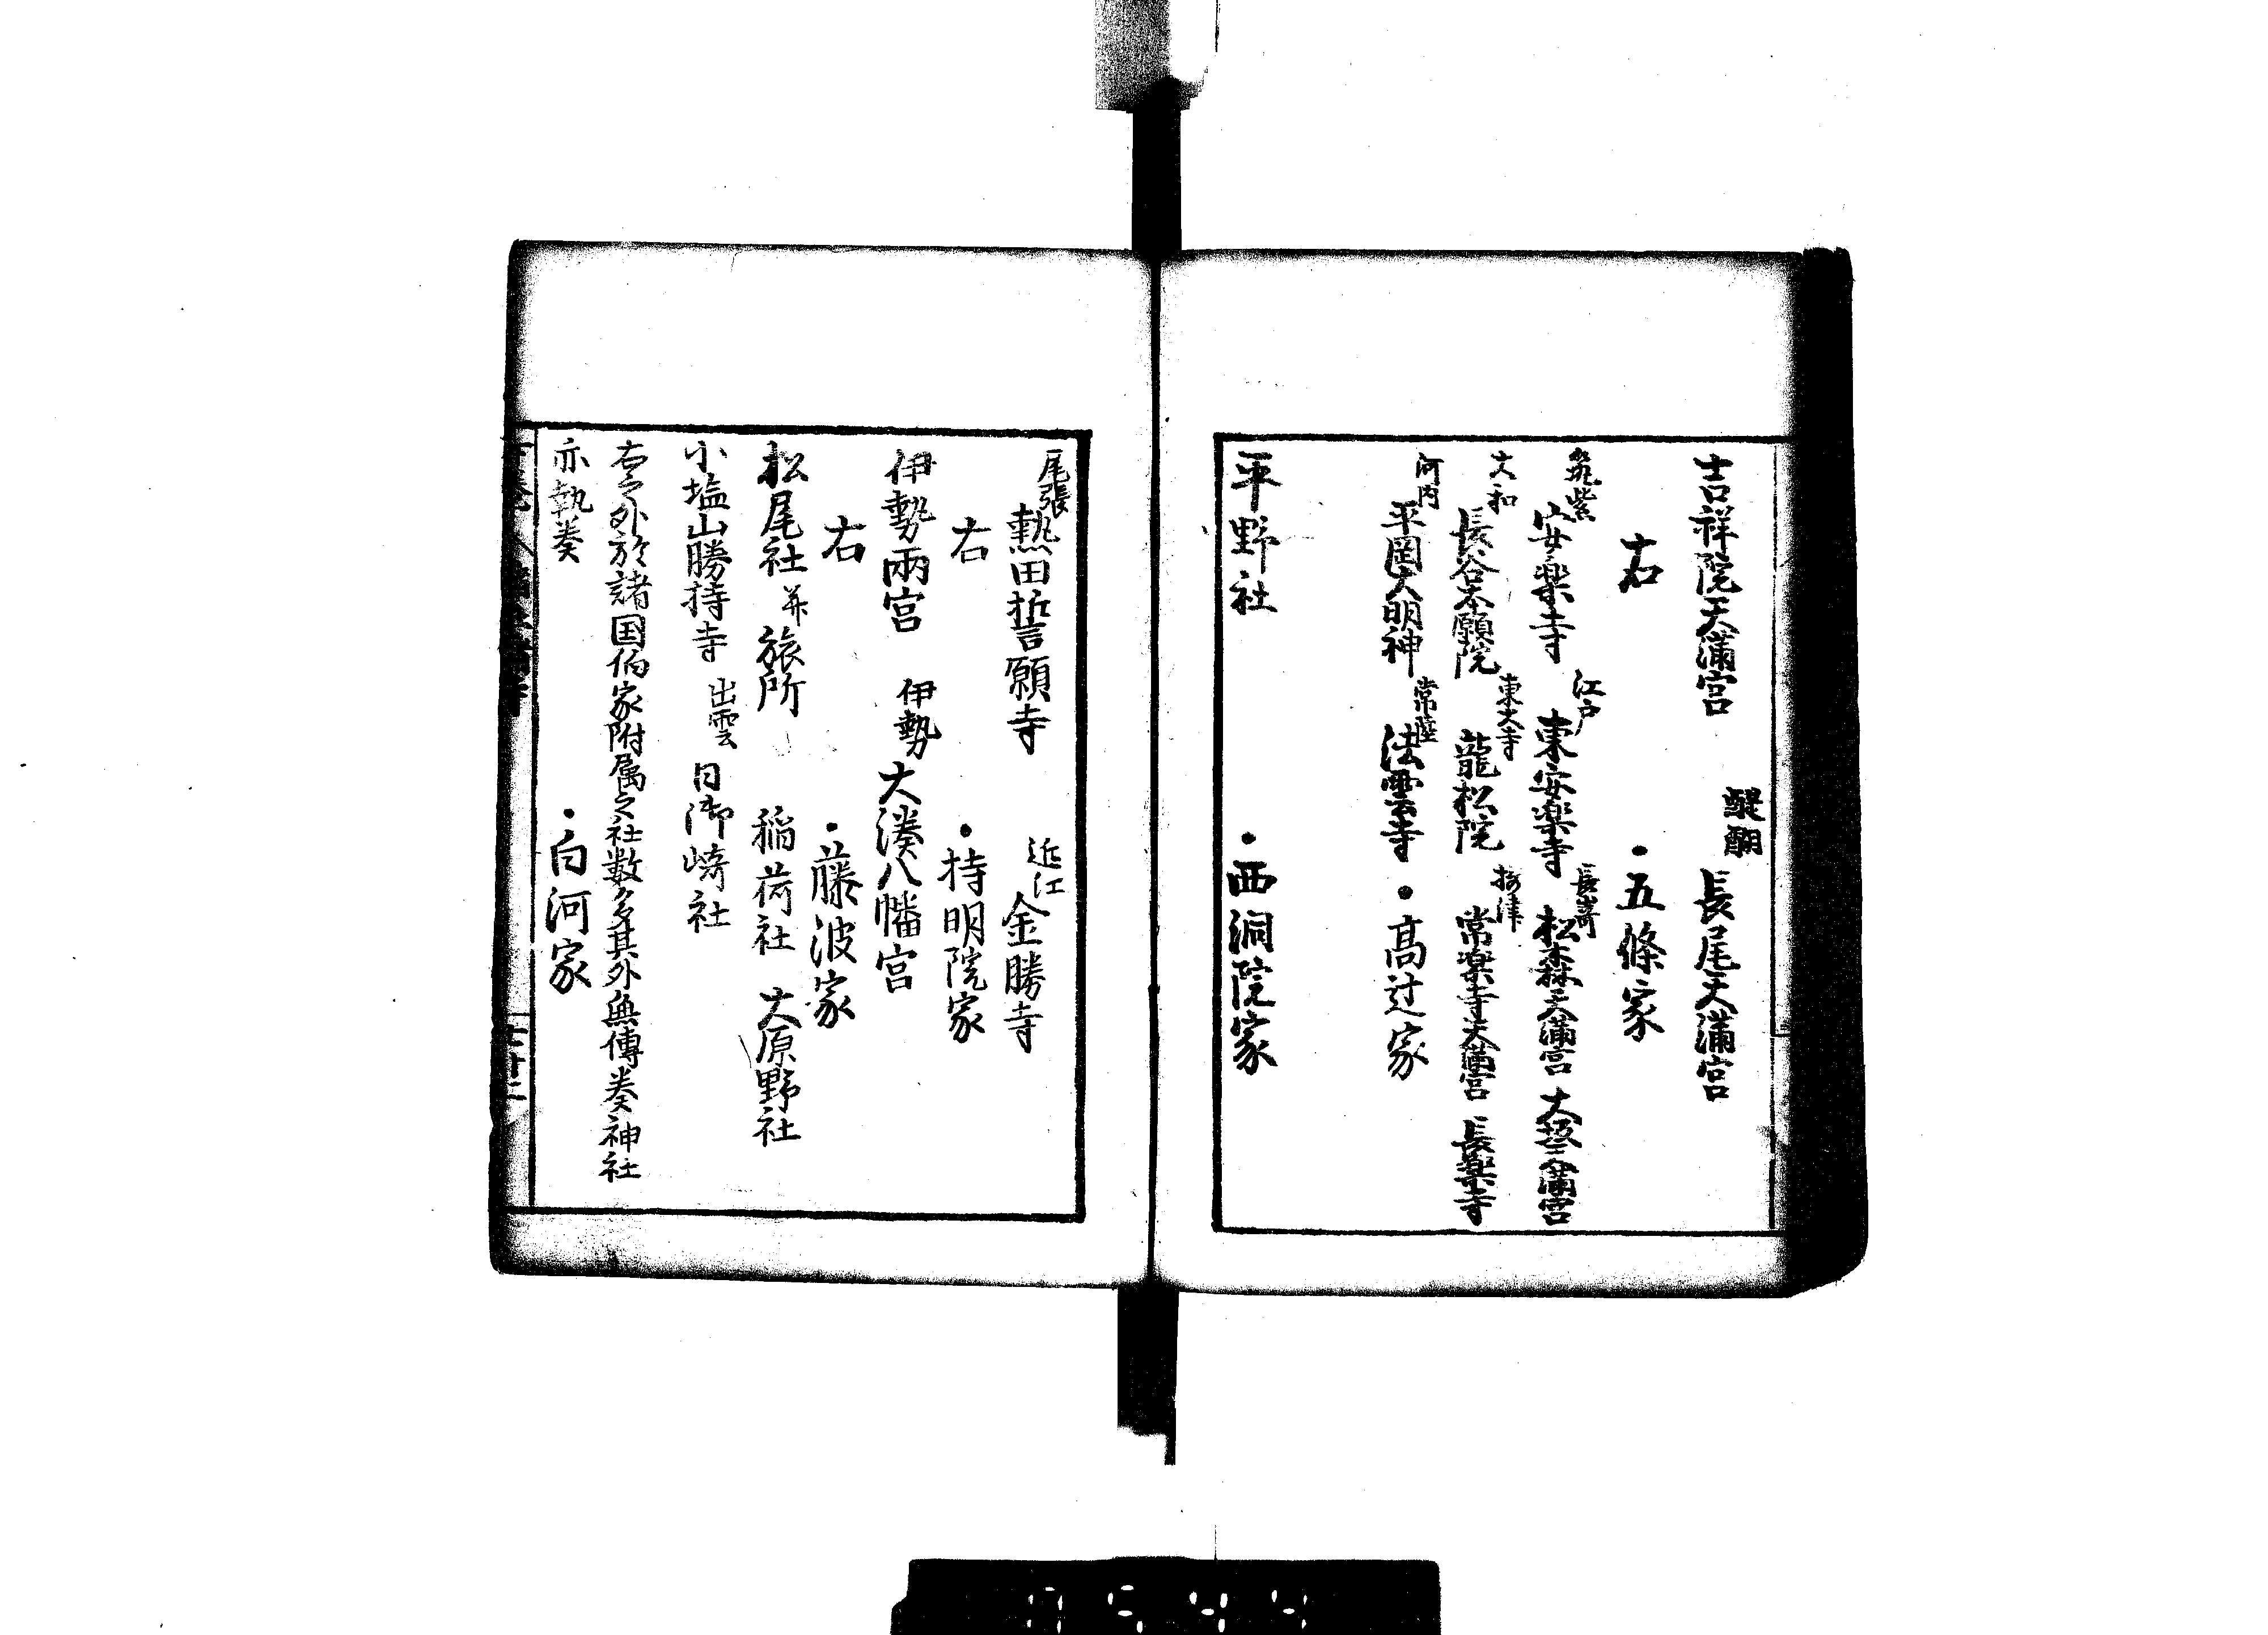 吉祥院天満宮 醍醐 長尾天満宮
右 ・五條家
筑紫 安楽寺 江戸 東安楽寺 長嵜 松森天満宮 大坂天満宮
大和 長谷本願院 東大寺 龍松院 摂津 常楽寺天満宮 長楽寺
河内 平岡大明神 常陸 法雲寺 ・髙辻家
平野社 ・西洞院家
尾張 熱田誓願寺 近江 金勝寺
右 ・持明院家
伊勢兩宮 伊勢 大湊八幡宮
右 ・藤波家
松尾社 并 旅所 稲荷社 大原野社
小塩山勝持寺 出雲 日御崎社
右之外於諸国伯家附属之社数多其外無傳奏神社
亦執奏 ・白河家